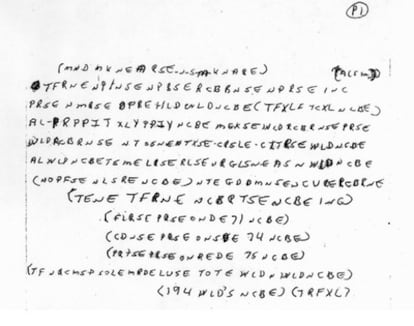 P1
(MND MKNEARSE-N-S-M-KNARE) (ACSM)
TFRNENPINSENPBSERCBBNSENPRSEINC
PRSENMRSEOPREHLDWLDNCBE(TFXLF TCXLNCBE)
AL-PRPPIT XLYPPIY NCBE MGKSEWLDRCBRNSEPRSE
WLDRCBRNSENTOSNENTXSE-CRSLE-CITRSEWLDNCBE
ALWLPNCBETSMELRSERLSEURGLSNEASNWLDNCBE
(NOPFSENLSRENCBE)NTEGDDMNSENCURERCBRNE
(TENE TFRNE NCBRTSENCBEING)
(FLRSEPRSEONDE71NCBE)
(CDNSEPRSEONSDE74NCBE)
(PRTSEPRSEONREDE75NCBE)
(TFNQCMSPSOLEMRDELUSETOTEWLDNWLDNCBE)
(194WLD'SNCBE)(TRFXL)